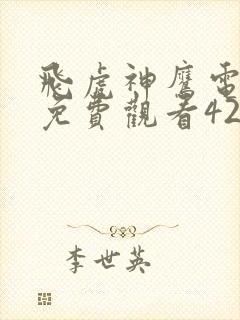 飛虎神鷹電
免費觀看42
李世英